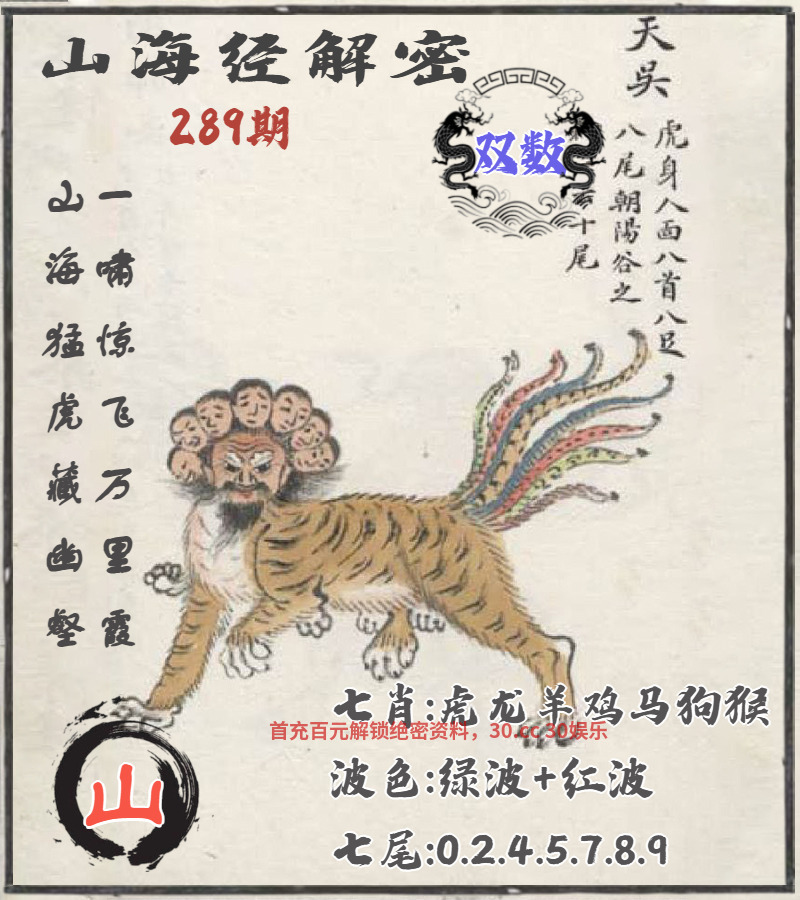 山海经解密
289期
天吳
虎身人面八首八足
八尾朝陽谷之
十尾
双数
山海猛虎藏幽壑
一啸惊飞万里霞
七肖:虎龙羊鸡马狗猴
首充百元解锁绝密资料，30.cc 30娱乐
波色:绿波+红波
七尾:0.2.4.5.7.8.9
山